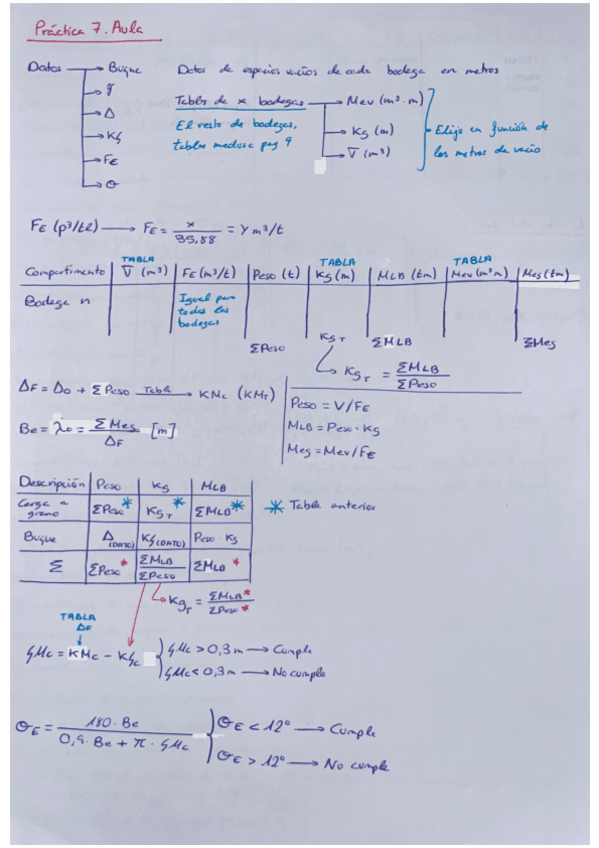 Práctica 7. Aula
Datos → Buque
→ γ
→ Δ
→ KG
→ FE
→ θ
Datos de espacios vacíos de cada bodega en metros
Tablas de x bodegas → Mev (m³·m)
→ KG (m)
→ V̅ (m³)
El resto de bodegas,
tablas medusa pag 9
Elijo en función de
los metros de vacío
FE (p³/tl) → FE = x / 35,88 = Y m³/t
TABLA TABLA TABLA
Compartimento V̅ (m³) FE (m³/t) Peso (t) KG (m) MLB (tm) Mev (m³m) Mes (tm)
Bodega n Igual para
todas las
bodegas
ΣPeso KGT ΣMLB ΣMes
→ KGT = ΣMLB / ΣPeso
ΔF = Δ0 + ΣPeso Tabla → KMc (KMT)
Peso = V/FE
Be = λ0 = ΣMes / ΔF [m]
MLB = Peso · KG
Mes = Mev/FE
Descripción Peso KG MLB
Carga a
grano ΣPeso* KGT* ΣMLB*
* Tabla anterior
Buque Δ(DATO) KG(DATO) Peso · KG
Σ ΣPeso* ΣMLB / ΣPeso ΣMLB*
→ KGT = ΣMLB* / ΣPeso*
TABLA
ΔF
GMc = KMc - KGc
GMc > 0,3m → Cumple
GMc < 0,3m → No cumple
θE = 180 · Be / 0,9 · Be + π · GMc
θE < 12° → Cumple
θE > 12° → No cumple